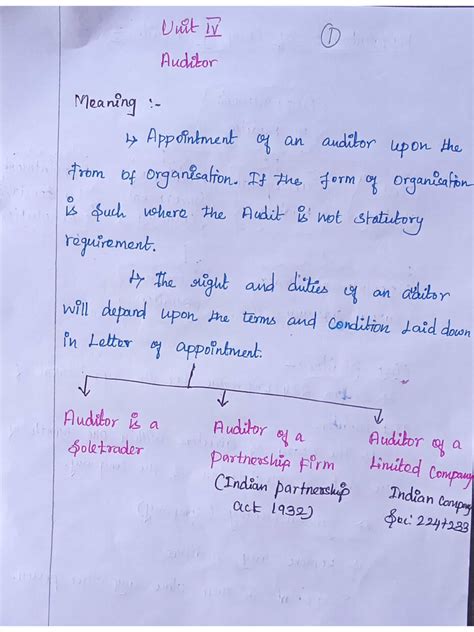 Unit IV
①
Auditor
Meaning :-
↳ Appointment of an auditor upon the
from of organisation. If the form of organisation
is such where the Audit is not statutory
requirement.
↳ The right and duties of an aditor
will depand upon the terms and condition Laid down
in Letter of appointment.
Auditor is a
Soletrader
Auditor of a
Partnership Firm
(Indian partnership
act 1932)
Auditor of a
Limited Company
Indian Compny
Sec: 224+233